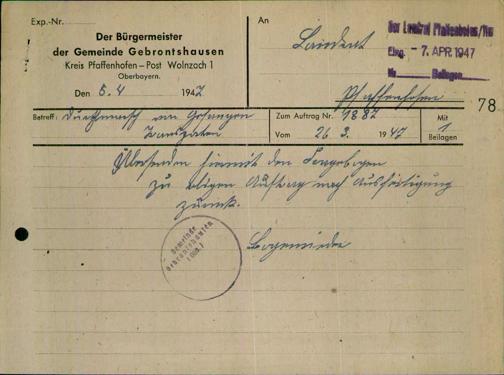 Exp.-Nr.
Der Bürgermeister
der Gemeinde Gebrontshausen
Kreis Pfaffenhofen – Post Wolnzach 1
Oberbayern.
Den 5.4 1947
An
Landrat
Pfaffenhofen
Der Landrat Pfaffenhofen/Ilm
Eing. - 7. APR. 1947
Nr. Beilagen
78
Betreff: Durchmarsch von Gefangen
Zum Auftrag Nr. 1887
Vom 26 3. 1947
Mit
1
Beilagen
Übersenden hiermit den Fragebogen
zu obigen Auftrag nach Ausfertigung
zurück.
Gemeinde
Gebrontshausen
Bürgermeister